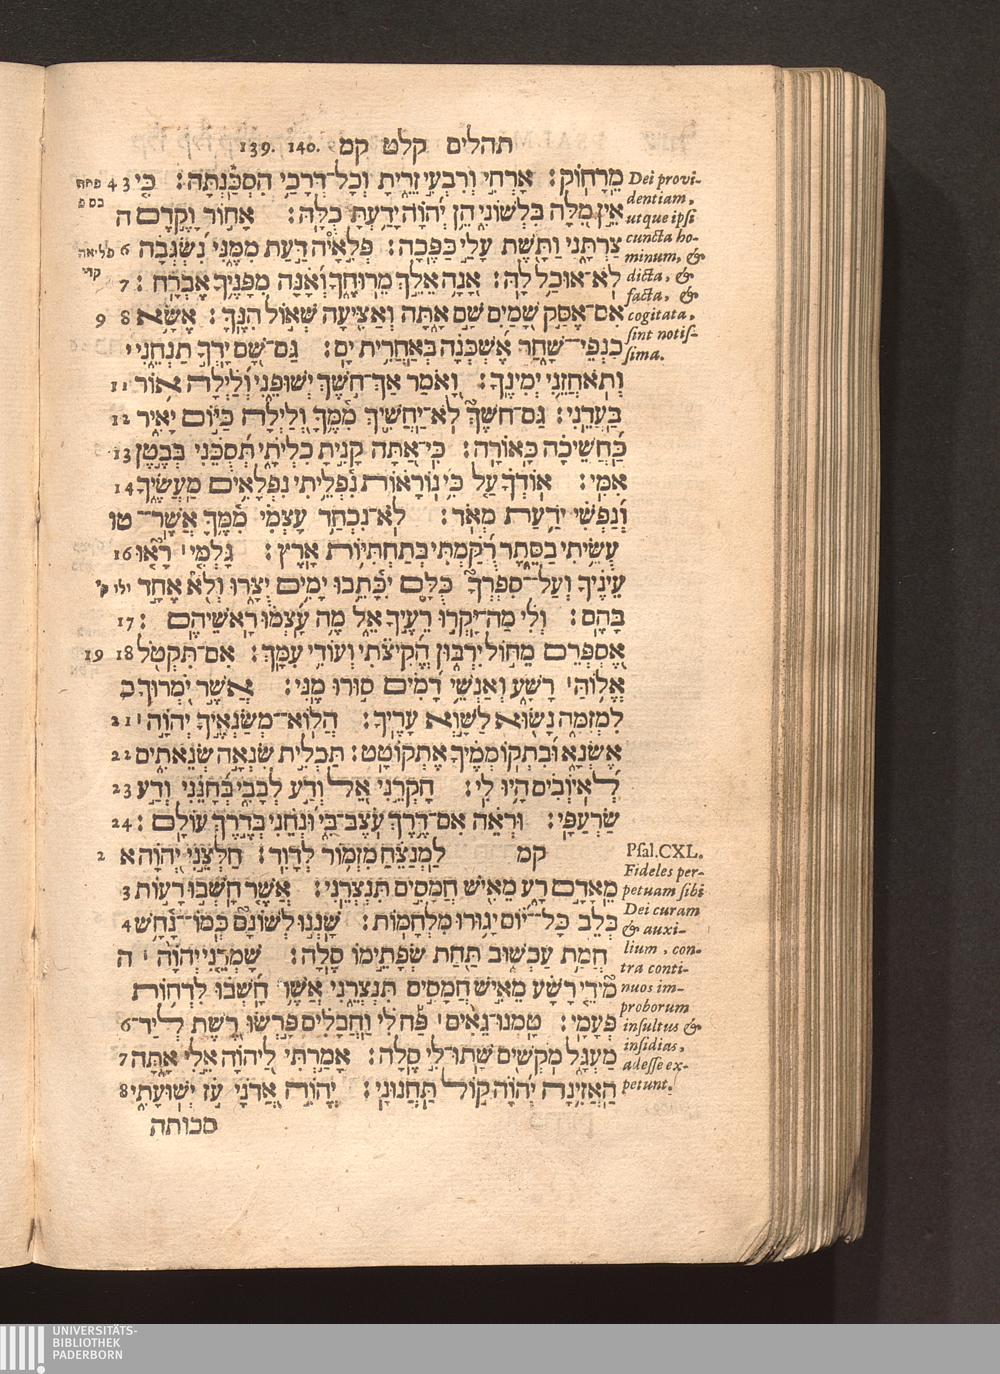 תהלים קלט קמ 139. 140.
מֵרָחֽוֹק׃ אָרְחִ֣י וְרִבְעִ֣י זֵרִ֑יתָ וְכָל־דְּרָכַ֥י הִסְכַּֽנְתָּה׃ כִּ֤י 3 4
אֵ֣ין מִ֭לָּה בִּלְשׁוֹנִ֑י הֵ֥ן יְ֝הוָ֗ה יָדַ֥עְתָּ כֻלָּֽהּ׃ אָח֣וֹר וָקֶ֣דֶם ה
צַרְתָּ֑נִי וַתָּ֖שֶׁת עָלַ֣י כַּפֶּֽכָה׃ פְּלִאָ֣יה דַ֣עַת מִמֶּ֑נִּי נִ֝שְׂגְּבָ֗ה 6
לֹא־א֥וּכַֽל לָֽהּ׃ אָ֭נָה אֵלֵ֣ךְ מֵרוּחֶ֑ךָ וְ֝אָ֗נָה מִפָּנֶ֥יךָ אֶבְרָֽח׃ 7
אִם־אֶסַּ֣ק שָׁ֭מַיִם שָׁ֣ם אָ֑תָּה וְאַצִּ֖יעָה שְּׁא֣וֹל הִנֶּֽךָּ׃ אֶשָּׂ֥א 8 9
כַנְפֵי־שָׁ֑חַר אֶ֝שְׁכְּנָ֗ה בְּאַחֲרִ֥ית יָֽם׃ גַּם־שָׁ֭ם יָדְךָ֣ תַנְחֵ֑נִי י
וְֽתֹאחֲזֵ֥נִי יְמִינֶֽךָ׃ וָ֭אֹמַר אַךְ־חֹ֣שֶׁךְ יְשׁוּפֵ֑נִי וְ֝לַ֗יְלָה א֣וֹר 11
בַּעֲדֵֽנִי׃ גַּם־חֹשֶׁךְ֮ לֹֽא־יַחֲשִׁ֪יךְ מִ֫מֶּ֥ךָ וְ֭לַיְלָה כַּיּ֣וֹם יָאִ֑יר 12
כַּ֝חֲשֵׁיכָ֗ה כָּאוֹרָֽה׃ כִּֽי־אַ֭תָּה קָנִ֣יתָ כִלְיֹתָ֑י תְּ֝סֻכֵּ֗נִי בְּבֶ֣טֶן 13
אִמִּֽי׃ אֽוֹדְךָ֗ עַ֤ל כִּ֥י נֽוֹרָא֗וֹת נִ֫פְלֵ֥יתִי נִפְלָאִ֥ים מַעֲשֶׂ֑יךָ 14
וְ֝נַפְשִׁ֗י יֹדַ֥עַת מְאֹֽד׃ לֹא־נִכְחַ֥ד עָצְמִ֗י מִ֫מֶּ֥ךָּ אֲשֶׁר־ טו
עֻשֵּׂ֥יתִי בַסֵּ֑תֶר רֻ֝קַּ֗מְתִּי בְּֽתַחְתִּיּ֥וֹת אָֽרֶץ׃ גָּלְמִ֤י רָ֘א֤וּ 16
עֵינֶ֗יךָ וְעַֽל־סִפְרְךָ֮ כֻּלָּ֪ם יִכָּ֫תֵ֥בוּ יָמִ֥ים יֻצָּ֑רוּ וְלֹ֖א אֶחָ֣ד
בָּהֶֽם׃ וְלִ֗י מַה־יָּקְר֣וּ רֵעֶ֣יךָ אֵ֑ל מֶ֥ה עָ֝צְמ֗וּ רָאשֵׁיהֶֽם׃ 17
אֶ֭סְפְּרֵם מֵח֣וֹל יִרְבּ֑וּן הֱ֝קִיצֹ֗תִי וְעוֹדִ֥י עִמָּֽךְ׃ אִם־תִּקְטֹ֖ל 18 19
אֱל֥וֹהַּ רָשָׁ֑ע וְאַנְשֵׁ֥י דָ֝מִ֗ים ס֣וּרוּ מֶֽנִּי׃ אֲשֶׁ֣ר יֹ֭מְרוּךָ כ
לִמְזִמָּ֑ה נָשׂ֖וּא לַשָּׁ֣וְא עָרֶֽיךָ׃ הֲלֽוֹא־מְשַׂנְאֶ֖יךָ יְהוָ֥ה 21
אֶשְׂנָ֑א וּ֝בִתְקוֹמְמֶ֗יךָ אֶתְקוֹטָֽט׃ תַּכְלִ֣ית שִׂנְאָ֣ה שְׂנֵאתִ֑ים 22
לְ֝אוֹיְבִ֗ים הָ֣יוּ לִֽי׃ חָקְרֵ֣נִי אֵ֭ל וְדַ֣ע לְבָבִ֑י בְּ֝חָנֵ֗נִי וְדַ֣ע 23
שַׂרְעַפָּֽי׃ וּרְאֵ֗ה אִם־דֶּֽרֶךְ־עֹ֥צֶב־בִּ֑י וּ֝נְחֵ֗נִי בְּדֶ֣רֶךְ עוֹלָֽם׃ 24
קמ לַמְנַצֵּ֗חַ מִזְמ֥וֹר לְדָוִֽד׃ חַלְּצֵ֣נִי יְ֭הוָה א 2
מֵאָדָ֣ם רָ֑ע מֵאִ֖ישׁ חֲמָסִ֣ים תִּנְצְרֵֽנִי׃ אֲשֶׁ֤ר חָשְׁב֣וּ רָע֣וֹת 3
בְּלֵ֑ב כָּל־י֝֗וֹם יָג֥וּרוּ מִלְחָמֽוֹת׃ שָֽׁנֲנ֣וּ לְשׁוֹנָם֮ כְּֽמוֹ־נָ֫חָ֥שׁ 4
חֲמַ֥ת עַכְשׁ֑וּב תַּ֖חַת שְׂפָתֵ֣ימוֹ סֶֽלָה׃ שָׁמְרֵ֤נִי יְהוָ֨ה ה
מִ֘ידֵ֤י רָשָׁ֗ע מֵאִ֣ישׁ חֲמָסִ֣ים תִּנְצְרֵ֑נִי אֲשֶׁ֥ר חָ֝שְׁב֗וּ לִדְח֥וֹת
פְּעָמָֽי׃ טָֽמְנוּ־גֵאִ֨ים פַּ֡ח לִ֗י וַחֲבָלִ֗ים פָּ֣רְשׂוּ רֶ֭שֶׁת לְיַד־ 6
מַעְגָּ֑ל מֹקְשִׁ֖ים שָֽׁתוּ־לִ֣י סֶֽלָה׃ אָמַ֣רְתִּי לַ֭יהוָה אֵ֣לִי אָ֑תָּה 7
הַאֲזִ֥ינָה יְ֝הוָ֗ה ק֣וֹל תַּחֲנוּנָֽי׃ יְהוִ֣ה אֲ֭דֹנָי עֹ֣ז יְשׁוּעָתִ֑י 8
סכותה
פליאה
קרי
Dei provi-
dentiam,
utque ipsi
cuncta ho-
minum, &
dicta, &
facta, &
cogitata,
sint notis-
sima.
Psal.CXL.
Fideles per-
petuam sibi
Dei curam
& auxi-
lium, con-
tra conti-
nuos im-
proborum
insultus &
insidias,
adesse ex-
petunt.
UNIVERSITÄTS-
BIBLIOTHEK
PADERBORN